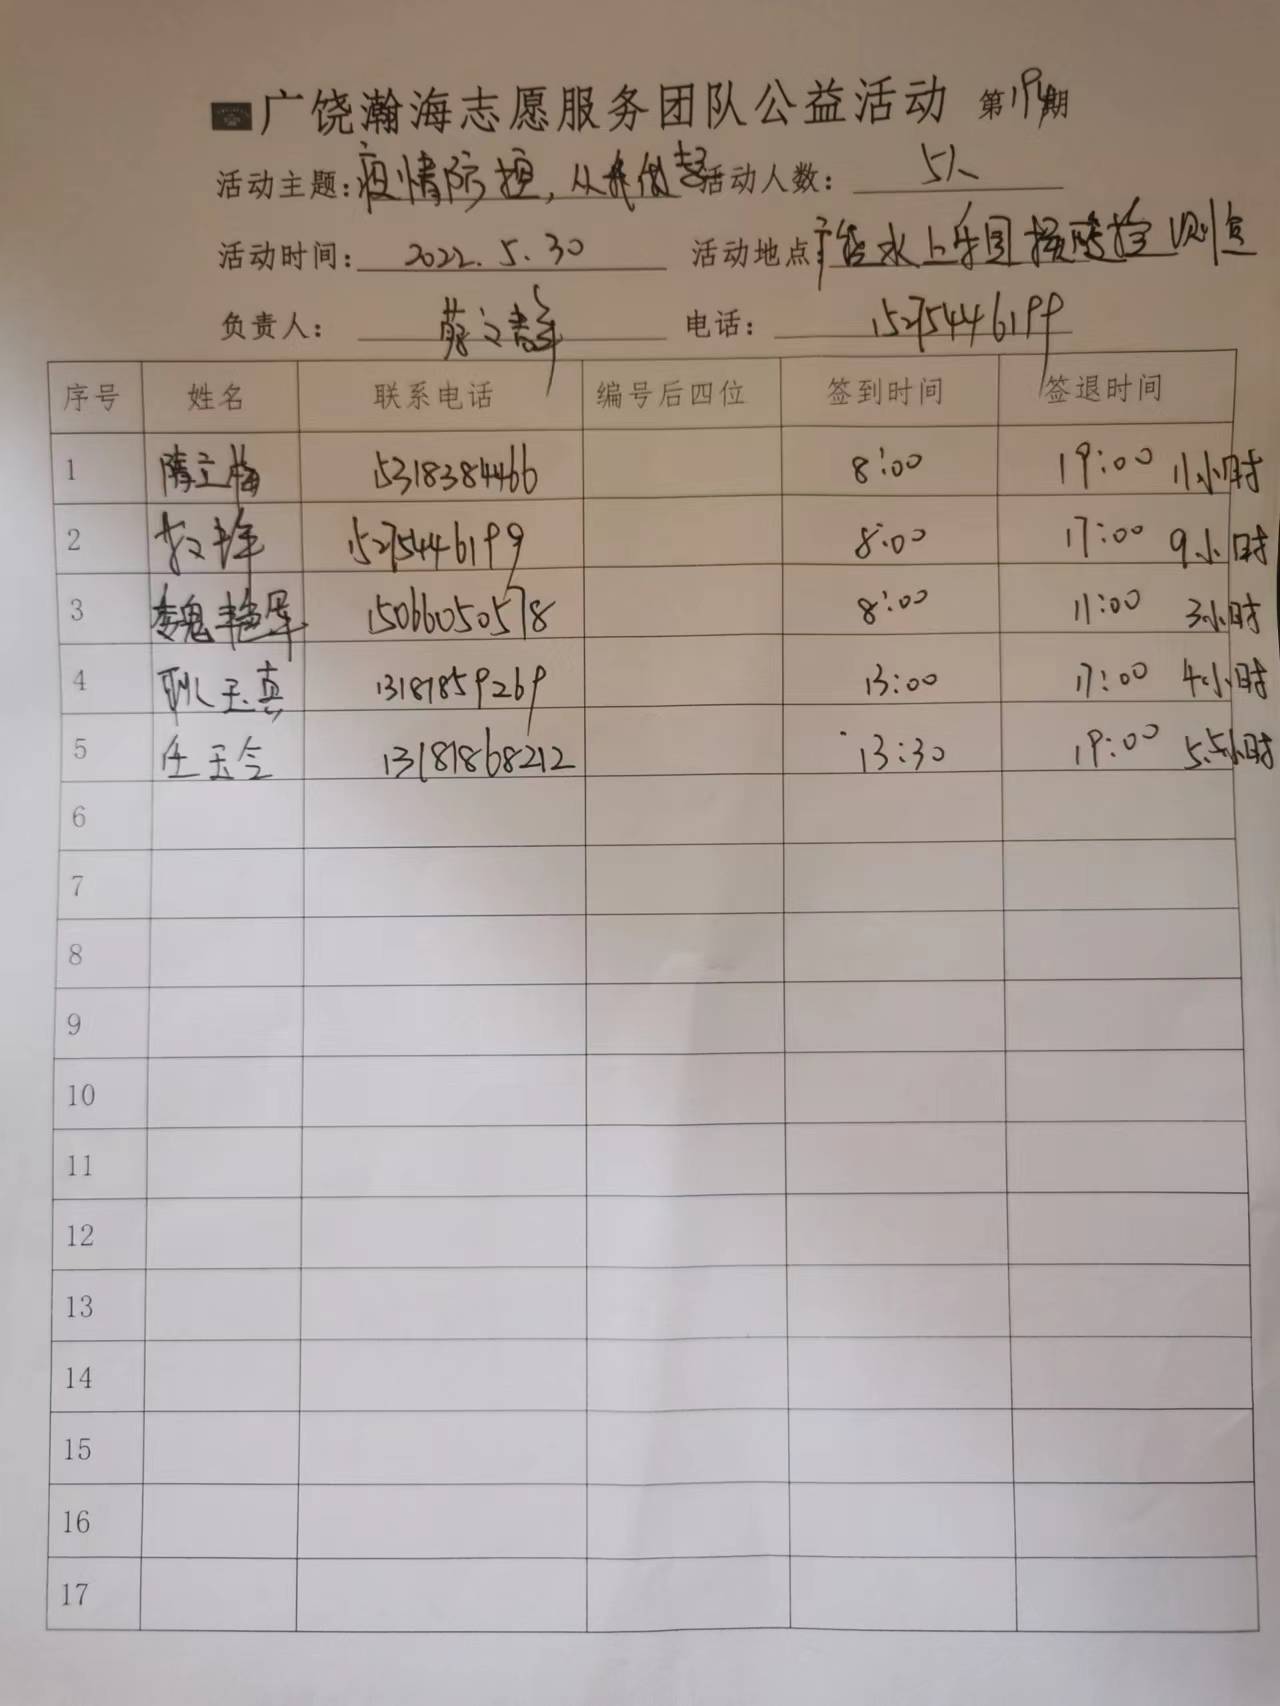 广饶瀚海志愿服务团队公益活动 第 期
活动主题:疫情防控,从我做起 活动人数: 5人
活动时间: 2022.5.30 活动地点: 广饶水上乐园核酸检测点
负责人: 电话: 15275446199
序号 姓名 联系电话 编号后四位 签到时间 签退时间
1 隋立梅 15318384466 8:00 19:00 11小时
2 15275446199 8:00 17:00 9小时
3 魏 15066050578 8:00 11:00 3小时
4 耿玉真 13181859269 13:00 17:00 4小时
5 任玉令 13181868212 13:30 19:00 5.5小时
6
7
8
9
10
11
12
13
14
15
16
17